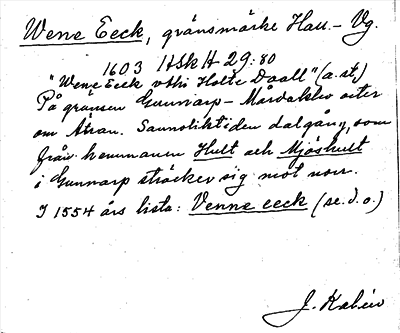 Wene Eeck, gränsmärke Hall.- Vg.
1603 HSkH 29:80
"Wene Eeck vthi Holte Daall" (a.st.)
På gränsen Gunnarp - Mårdaklev öster
om Ätran. Sannolikt i den dalgång, som
från hemmanen Hult och Mjöshult
i Gunnarp sträcker sig mot norr.
I 1554 års lista: Venne eeck (se.d.o.)
J. Kalén